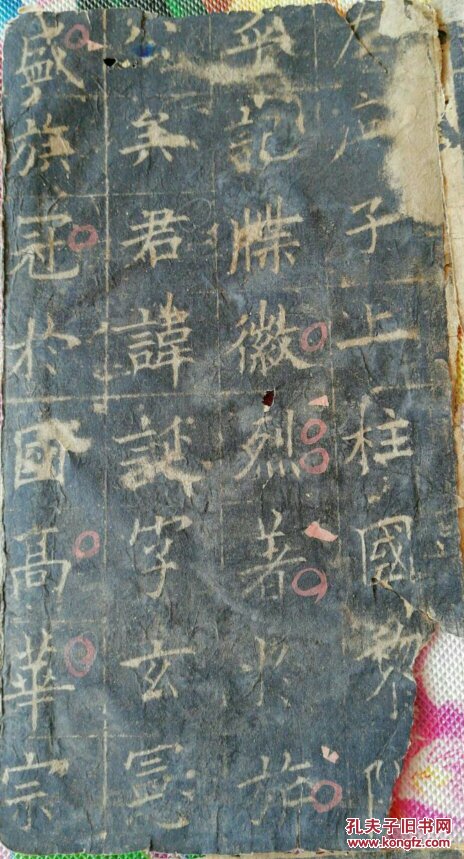 左庶子上柱國黎
乎記牒徽烈著於施
公矣君諱誕字玄憲
盛族冠於國高華宗
孔夫子旧书网
www.kongfz.com